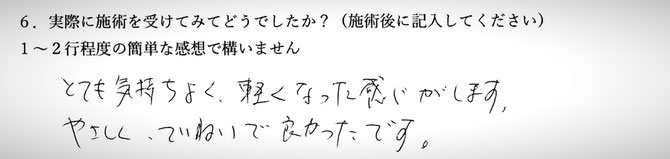 ６．実際に施術を受けてみてどうでしたか？（施術後に記入してください）
１～２行程度の簡単な感想で構いません
とても気持ちよく、軽くなった感じがします，
やさしく、ていねいで良かったです。